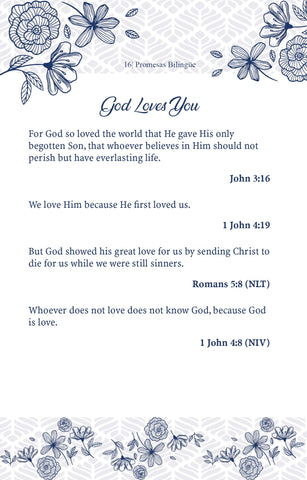 16| Promesas Bilingüe
God Loves You
For God so loved the world that He gave His only
begotten Son, that whoever believes in Him should not
perish but have everlasting life.
John 3:16
We love Him because He first loved us.
1 John 4:19
But God showed his great love for us by sending Christ to
die for us while we were still sinners.
Romans 5:8 (NLT)
Whoever does not love does not know God, because God
is love.
1 John 4:8 (NIV)